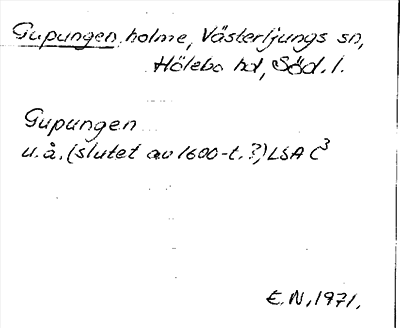 Gupungen, holme, Västerljungs sn,
Hölebo hd, Söd. l.
Gupungen
u.å. (slutet av 1600-t.?) LSA C3
E.N., 1971.